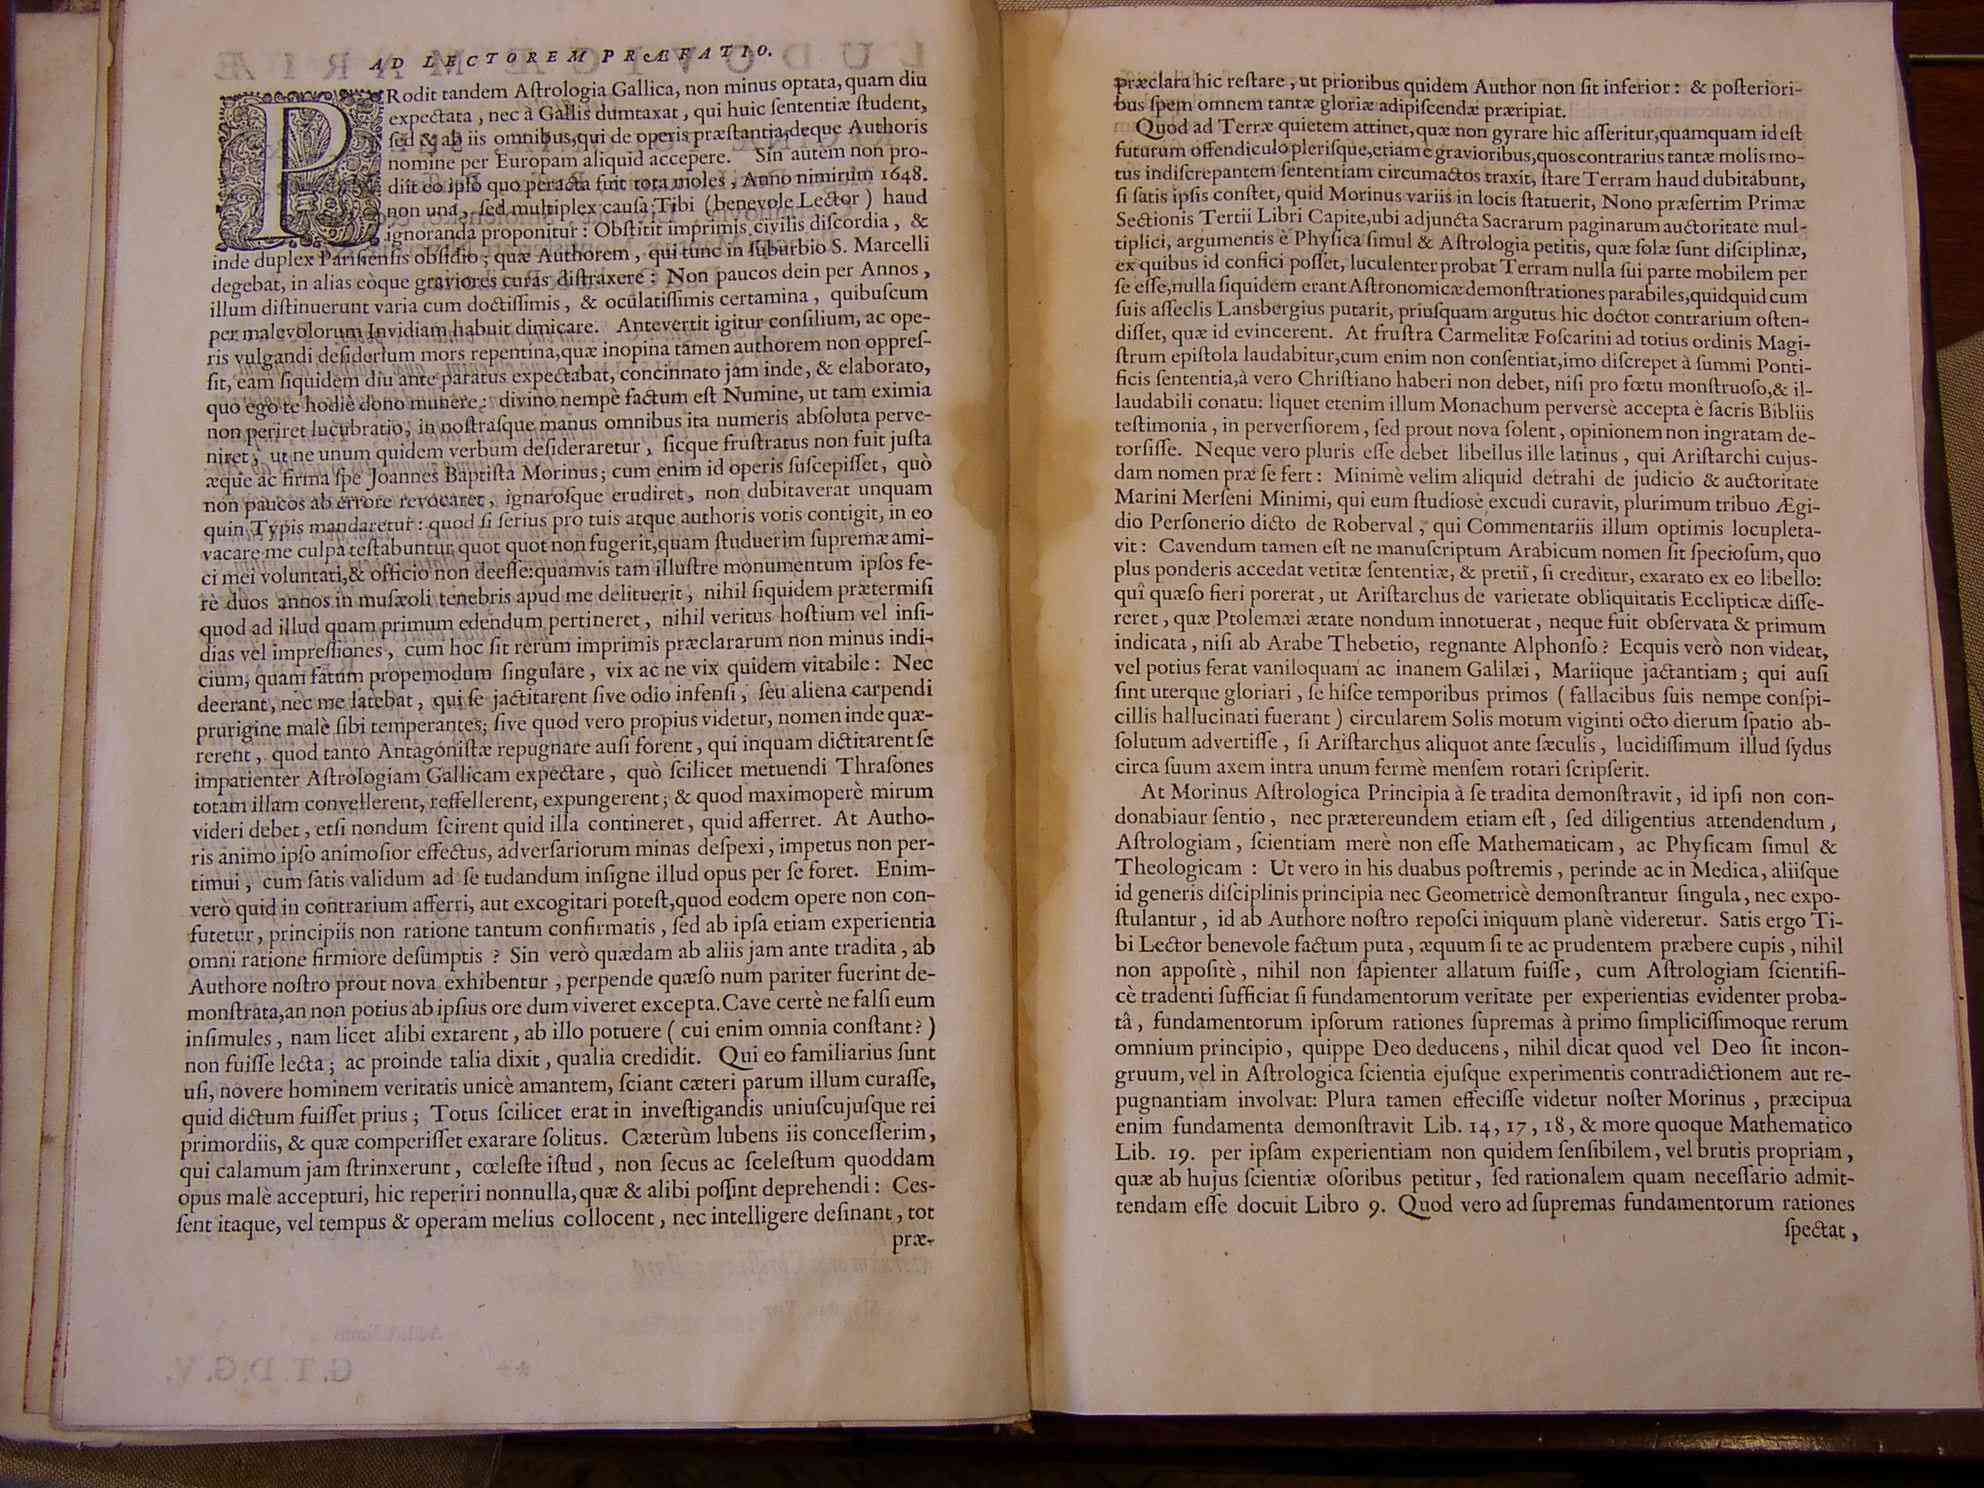 AD LECTOREM PRÆFATIO.
PRodit tandem Aſtrologia Gallica, non minus optata, quam diu
expectata, nec à Gallis dumtaxat, qui huic ſententiæ ſtudent,
ſed & ab iis omnibus, qui de operis præſtantia, deque Authoris
nomine per Europam aliquid accepere. Sin autem non pro-
diit eo ipſo quo peracta fuit tota moles, Anno nimirum 1648.
non una, ſed multiplex cauſa Tibi (benevole Lector) haud
ignoranda proponitur: Obſtitit imprimis civilis diſcordia, &
inde duplex Pariſienſis obſidio; quæ Authorem, qui tunc in ſuburbio S. Marcelli
degebat, in alias eòque graviores curas diſtraxere: Non paucos dein per Annos,
illum diſtinuerunt varia cum doctiſſimis, & oculatiſſimis certamina, quibuſcum
per malevolorum Invidiam habuit dimicare. Antevertit igitur conſilium, ac ope-
ris vulgandi deſiderium mors repentina, quæ inopina tamen authorem non oppreſ-
ſit, eam ſiquidem diu ante paratus expectabat, concinnato jam inde, & elaborato,
quo ego te hodie dono munere: divino nempè factum eſt Numine, ut tam eximia
non periret lucubratio, in noſtraſque manus omnibus ita numeris abſoluta perve-
niret, ut ne unum quidem verbum deſideraretur, ſicque fruſtratus non fuit juſta
æquè ac firma ſpe Joannes Baptiſta Morinus; cum enim id operis ſuſcepiſſet, quò
non paucos ab errore revocaret, ignaroſque erudiret, non dubitaverat unquam
quin Typis mandaretur: quod ſi ſerius pro tuis atque authoris votis contigit, in eo
vacare me culpâ teſtabuntur quot quot non fugerit, quam ſtuduerim ſupremæ ami-
ci mei voluntati, & officio non deeſſe: quamvis tam illuſtre monumentum ipſos fe-
rè duos annos in muſæoli tenebris apud me delituerit, nihil ſiquidem prætermiſi
quod ad illud quam primum edendum pertineret, nihil veritus hoſtium vel inſi-
dias vel impreſſiones, cum hoc ſit rerum imprimis præclararum non minus indi-
cium, quam fatum propemodum ſingulare, vix ac ne vix quidem vitabile: Nec
deerant, nec me latebat, qui ſe jactitarent ſive odio infenſi, ſeu aliena carpendi
prurigine malè ſibi temperantes; ſive quod vero propius videtur, nomen inde quæ-
rerent, quod tanto Antagoniſtæ repugnare auſi forent, qui inquam dictitarent ſe
impatienter Aſtrologiam Gallicam expectare, quò ſcilicet metuendi Thraſones
totam illam convellerent, reffellerent, expungerent; & quod maximoperè mirum
videri debet, etſi nondum ſcirent quid illa contineret, quid afferret. At Autho-
ris animo ipſo animoſior effectus, adverſariorum minas deſpexi, impetus non per-
timui, cum ſatis validum ad ſe tudandum inſigne illud opus per ſe foret. Enim-
verò quid in contrarium afferri, aut excogitari poteſt, quod eodem opere non con-
futetur, principiis non ratione tantum confirmatis, ſed ab ipſa etiam experientia
omni ratione firmiore deſumptis? Sin verò quædam ab aliis jam ante tradita, ab
Authore noſtro prout nova exhibentur, perpende quæſo num pariter fuerint de-
monſtrata, an non potius ab ipſius ore dum viveret excepta. Cave certè ne falſi eum
inſimules, nam licet alibi extarent, ab illo potuere (cui enim omnia conſtant?)
non fuiſſe lecta; ac proinde talia dixit, qualia credidit. Qui eo familiarius ſunt
uſi, novere hominem veritatis unicè amantem, ſciant cæteri parum illum curaſſe,
quid dictum fuiſſet prius; Totus ſcilicet erat in inveſtigandis uniuſcujuſque rei
primordiis, & quæ comperiſſet exarare ſolitus. Cæterùm lubens iis conceſſerim,
qui calamum jam ſtrinxerunt, cœleſte iſtud, non ſecus ac ſceleſtum quoddam
opus malè accepturi, hic reperiri nonnulla, quæ & alibi poſſint deprehendi: Ceſ-
ſent itaque, vel tempus & operam melius collocent, nec intelligere deſinant, tot
præ-
præclara hic reſtare, ut prioribus quidem Author non ſit inferior: & poſteriori-
bus ſpem omnem tantæ gloriæ adipiſcendæ præripiat.
Quod ad Terræ quietem attinet, quæ non gyrare hic aſſeritur, quamquam id eſt
futurum offendiculo pleriſque, etiam è gravioribus, quos contrarius tantæ molis mo-
tus indiſcrepantem ſententiam circumactos traxit, ſtare Terram haud dubitabunt,
ſi ſatis ipſis conſtet, quid Morinus variis in locis ſtatuerit, Nono præſertim Primæ
Sectionis Tertii Libri Capite, ubi adjuncta Sacrarum paginarum auctoritate mul-
tiplici, argumentis è Phyſica ſimul & Aſtrologia petitis, quæ ſolæ ſunt diſciplinæ,
ex quibus id confici poſſet, luculenter probat Terram nulla ſui parte mobilem per
ſe eſſe, nulla ſiquidem erant Aſtronomicæ demonſtrationes parabiles, quidquid cum
ſuis aſſeclis Lansbergius putarit, priuſquam argutus hic doctor contrarium oſten-
diſſet, quæ id evincerent. At fruſtra Carmelitæ Foſcarini ad totius ordinis Magi-
ſtrum epiſtola laudabitur, cum enim non conſentiat, imo diſcrepet à ſummi Ponti-
ficis ſententia, à vero Chriſtiano haberi non debet, niſi pro fœtu monſtruoſo, & il-
laudabili conatu: liquet etenim illum Monachum perversè accepta è ſacris Bibliis
teſtimonia, in perverſiorem, ſed prout nova ſolent, opinionem non ingratam de-
torſiſſe. Neque vero pluris eſſe debet libellus ille latinus, qui Ariſtarchi cujuſ-
dam nomen præ ſe fert: Minimè velim aliquid detrahi de judicio & auctoritate
Marini Merſeni Minimi, qui eum ſtudiosè excudi curavit, plurimum tribuo Ægi-
dio Perſonerio dicto de Roberval, qui Commentariis illum optimis locupleta-
vit: Cavendum tamen eſt ne manuſcriptum Arabicum nomen ſit ſpecioſum, quo
plus ponderis accedat vetitæ ſententiæ, & pretiî, ſi creditur, exarato ex eo libello:
quî quæſo fieri poterat, ut Ariſtarchus de varietate obliquitatis Eccliptiсæ diſſe-
reret, quæ Ptolemæi ætate nondum innotuerat, neque fuit obſervata & primum
indicata, niſi ab Arabe Thebetio, regnante Alphonſo? Ecquis verò non videat,
vel potius ferat vaniloquam ac inanem Galilæi, Mariique jactantiam; qui auſi
ſint uterque gloriari, ſe hiſce temporibus primos (fallacibus ſuis nempe conſpi-
cillis hallucinati fuerant) circularem Solis motum viginti octo dierum ſpatio ab-
ſolutum advertiſſe, ſi Ariſtarchus aliquot ante ſæculis, lucidiſſimum illud ſydus
circa ſuum axem intra unum fermè menſem rotari ſcripſerit.
At Morinus Aſtrologica Principia à ſe tradita demonſtravit, id ipſi non con-
donabiaur ſentio, nec prætereundem etiam eſt, ſed diligentius attendendum,
Aſtrologiam, ſcientiam merè non eſſe Mathematicam, ac Phyſicam ſimul &
Theologicam: Ut vero in his duabus poſtremis, perinde ac in Medica, aliiſque
id generis diſciplinis principia nec Geometricè demonſtrantur ſingula, nec expo-
ſtulantur, id ab Authore noſtro repoſci iniquum planè videretur. Satis ergo Ti-
bi Lector benevole factum puta, æquum ſi te ac prudentem præbere cupis, nihil
non appoſitè, nihil non ſapienter allatum fuiſſe, cum Aſtrologiam ſcientifi-
cè tradenti ſufficiat ſi fundamentorum veritate per experientias evidenter proba-
tâ, fundamentorum ipſorum rationes ſupremas à primo ſimpliciſſimoque rerum
omnium principio, quippe Deo deducens, nihil dicat quod vel Deo ſit incon-
gruum, vel in Aſtrologica ſcientia ejuſque experimentis contradictionem aut re-
pugnantiam involvat: Plura tamen effeciſſe videtur noſter Morinus, præcipua
enim fundamenta demonſtravit Lib. 14, 17, 18, & more quoque Mathematico
Lib. 19. per ipſam experientiam non quidem ſenſibilem, vel brutis propriam,
quæ ab hujus ſcientiæ oſoribus petitur, ſed rationalem quam neceſſario admit-
tendam eſſe docuit Libro 9. Quod vero ad ſupremas fundamentorum rationes
ſpectat,